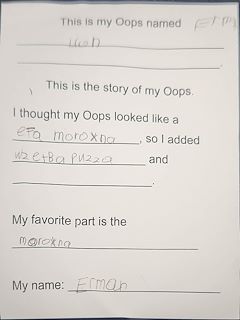 This is my Oops named
This is the story of my Oops.
I thought my Oops looked like a
efa moroxna, so I added
and
My favorite part is the
moroxna
My name: Erman